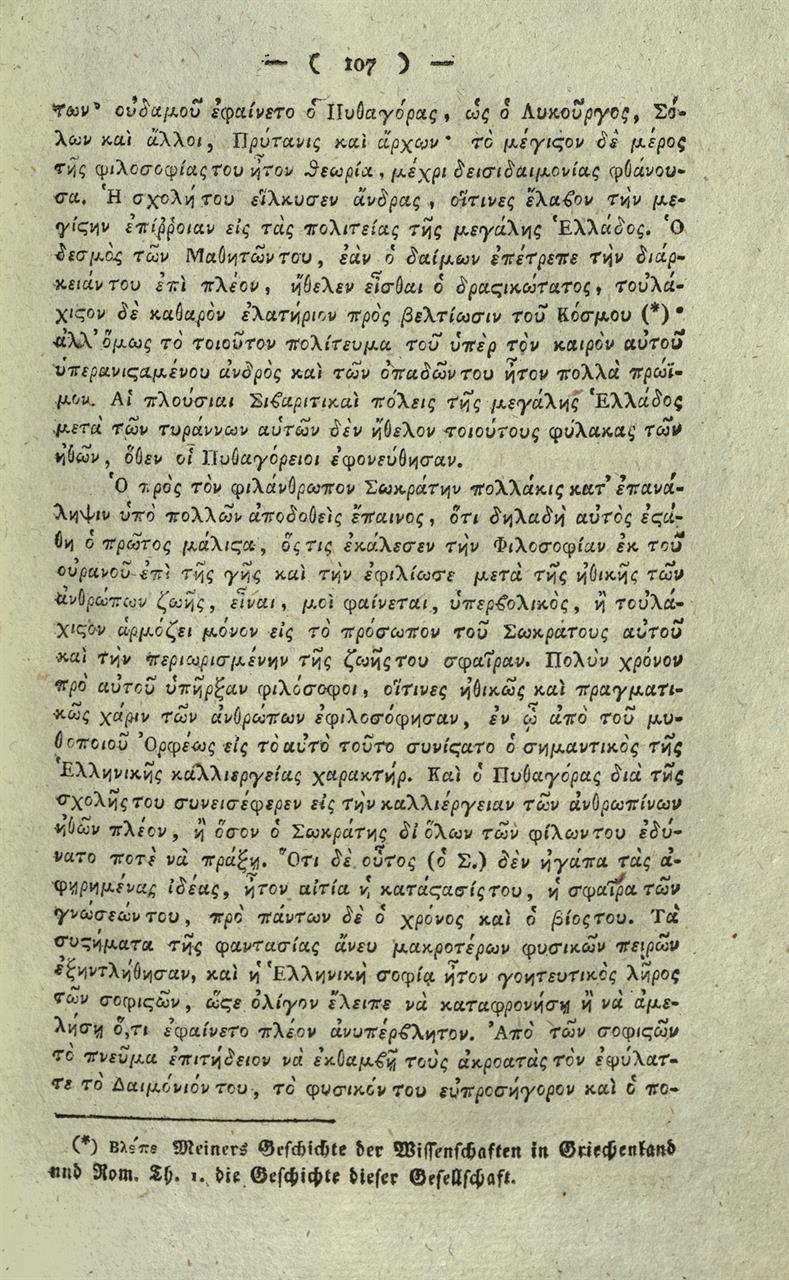 — ( 107 ) —
των· οὐδαμοῦ ἐφαίνετο ὁ Πυθαγόρας, ὡς ὁ Λυκοῦργος, Σό-
λων καὶ ἄλλοι, Πρύτανις καὶ ἄρχων· τὸ μέγιϛον δὲ μέρος
τῆς φιλοσοφίας του ἦτον θεωρία, μέχρι δεισιδαιμονίας φθάνου-
σα. Ἡ σχολή του εἵλκυσεν ἄνδρας, οἵτινες ἔλαβον τὴν με-
γίϛην ἐπίῤῥοιαν εἰς τὰς πολιτείας τῆς μεγάλης Ἑλλάδος. Ὁ
δεσμὸς τῶν Μαθητῶν του, ἐὰν ὁ δαίμων ἐπέτρεπε τὴν διάρ-
κειάν του ἐπὶ πλέον, ἤθελεν εἶσθαι ὁ δραϛικώτατος, τοὐλά-
χιϛον δὲ καθαρὸν ἐλατήριον πρὸς βελτίωσιν τοῦ Κόσμου (*)·
ἀλλ' ὅμως τὸ τοιοῦτον πολίτευμα τοῦ ὑπὲρ τὸν καιρὸν αὐτοῦ
ὑπερανιϛαμένου ἀνδρὸς καὶ τῶν ὀπαδῶν του ἦτον πολλὰ πρώϊ-
μον. Αἱ πλούσιαι Σιβαριτικαὶ πόλεις τῆς μεγάλης Ἑλλάδος
μετὰ τῶν τυράννων αὐτῶν δὲν ἤθελον τοιούτους φύλακας τῶν
ἠθῶν, ὅθεν οἱ Πυθαγόρειοι ἐφονεύθησαν.
Ὁ πρὸς τὸν φιλάνθρωπον Σωκράτην πολλάκις κατ' ἐπανά-
ληψιν ὑπὸ πολλῶν ἀποδοθεὶς ἔπαινος, ὅτι δηλαδὴ αὐτὸς ἐϛά-
θη ὁ πρῶτος μάλιϛα, ὅς τις ἐκάλεσεν τὴν Φιλοσοφίαν ἐκ τοῦ
οὐρανοῦ ἐπὶ τῆς γῆς καὶ τὴν ἐφιλίωσε μετὰ τῆς ἠθικῆς τῶν
ἀνθρώπων ζωῆς, εἶναι, μοὶ φαίνεται, ὑπερβολικὸς, ἢ τοὐλά-
χιϛον ἁρμόζει μόνον εἰς τὸ πρόσωπον τοῦ Σωκράτους αὐτοῦ
καὶ τὴν περιωρισμένην τῆς ζωῆς του σφαῖραν. Πολὺν χρόνον
πρὸ αὐτοῦ ὑπῆρξαν φιλόσοφοι, οἵτινες ἠθικῶς καὶ πραγματι-
κῶς χάριν τῶν ἀνθρώπων ἐφιλοσόφησαν, ἐν ᾧ ἀπὸ τοῦ μυ-
θοποιοῦ Ὀρφέως εἰς τὸ αὐτὸ τοῦτο συνίϛατο ὁ σημαντικὸς τῆς
Ἑλληνικῆς κάλλιεργείας χαρακτήρ. Καὶ ὁ Πυθαγόρας διὰ τῆς
σχολῆς του συνεισέφερεν εἰς τὴν καλλιέργειαν τῶν ἀνθρωπίνων
ἠθῶν πλέον, ἢ ὅσον ὁ Σωκράτης δἰ ὅλων τῶν φίλων του ἐδύ-
νατο ποτὲ νὰ πράξῃ. Ὅτι δὲ οὗτος (ὁ Σ.) δὲν ἠγάπα τὰς ἀ-
φηρημένας ἰδέας, ἦτον αἰτία ἡ κατάϛασίς του, ἡ σφαῖρα τῶν
γνώσεών του, πρὸ πάντων δὲ ὁ χρόνος καὶ ὁ βίος του. Τὰ
συϛήματα τῆς φαντασίας ἄνευ μακροτέρων φυσικῶν πειρῶν
ἐξηντλήθησαν, καὶ ἡ Ἑλληνικὴ σοφία ἦτον γοητευτικὸς λῆρος
τῶν σοφιϛῶν, ὥϛε ὀλίγον ἔλειπε νὰ καταφρονήσῃ ἢ νὰ ἀμε-
λήσῃ ὅ,τι ἐφαίνετο πλέον ἀνυπέρβλητον. Ἀπὸ τῶν σοφιϛῶν
τὸ πνεῦμα ἐπιτήδειον νὰ ἐκθαμβῇ τοὺς ἀκροατὰς τὸν ἐφύλατ-
τε τὸ Δαιμόνιόν του, τὸ φυσικόν του εὐπροσήγορον καὶ ὁ πο-
(*) Βλέπε Meiners Geschichte der Wissenschaften in Griechenland
und Rom. Th. 1. die Geschichte dieser Gesellschaft.